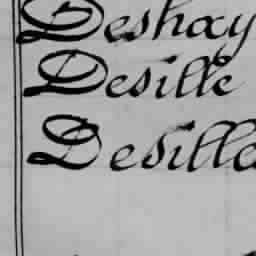 Deshay
Desille
Desille